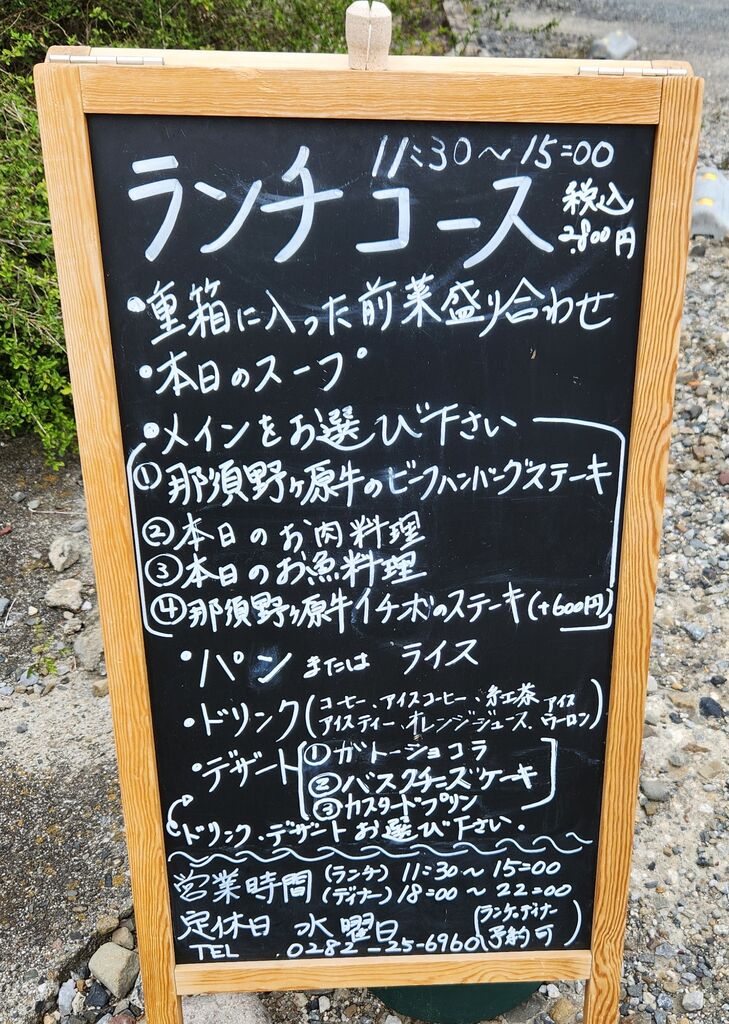 11:30～15:00
ランチコース 税込
2,800円
・重箱に入った前菜盛り合わせ
・本日のスープ
・メインをお選び下さい
①那須野ヶ原牛のビーフハンバーグステーキ
②本日のお肉料理
③本日のお魚料理
④那須野ヶ原牛イチボのステーキ(+600円)
・パン または ライス
・ドリンク(コーヒー、アイスコーヒー、紅茶、アイス
アイスティー、オレンジジュース、ウーロン)
・デザート ①ガトーショコラ
②バスクチーズケーキ
③カスタードプリン
ドリンク・デザートお選び下さい。
営業時間 (ランチ) 11:30～15:00
(ディナー) 18:00～22:00
定休日 水曜日 (ランチ・ディナー
TEL 0282-25-6960 予約可)